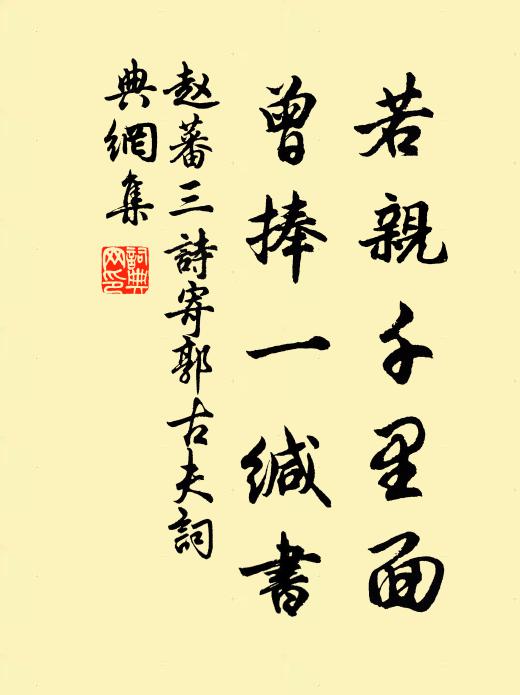 若親千里面
曾捧一緘書
赵蕃三詩寄郭古夫詞
典網集
詞典
网印